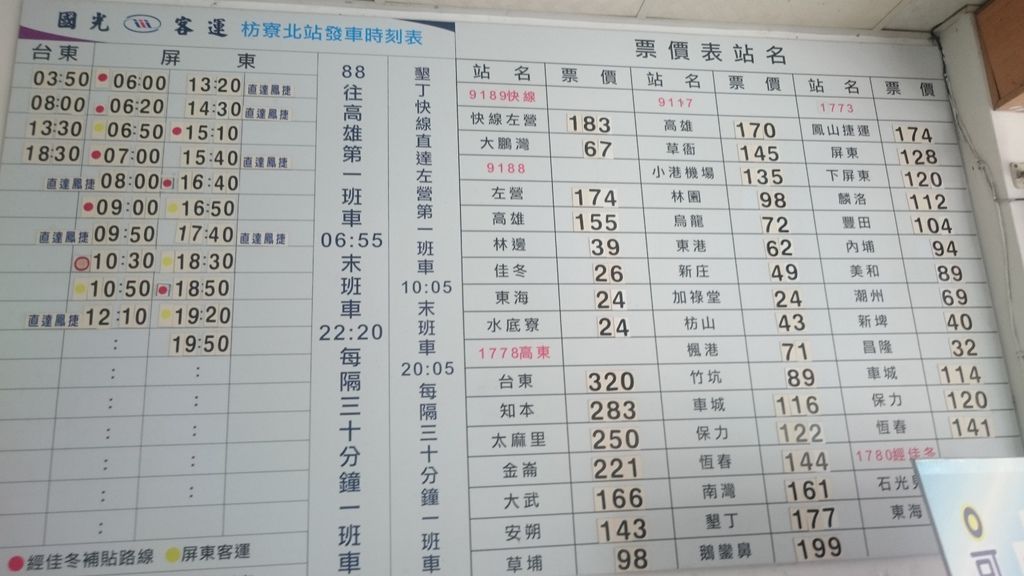 國光客運 枋寮北站發車時刻表
台東 屏東
03:50 06:00 13:20 直達鳳捷
08:00 06:20 14:30 直達鳳捷
13:30 06:50 15:10
18:30 07:00 15:40 直達鳳捷
直達鳳捷 08:00 16:40
09:00 16:50
直達鳳捷 09:50 17:40 直達鳳捷
10:30 18:30
10:50 18:50
直達鳳捷 12:10 19:20
: 19:50
: :
: :
: :
: :
: :
: :
經佳冬補貼路線 屏東客運
88往高雄第一班車06:55末班車22:20每隔三十分鐘一班車
墾丁快線直達左營第一班車10:05末班車20:05每隔三十分鐘一班車
票價表站名
站名 票價 站名 票價 站名 票價
9189快線 9117 1773
快線左營 183 高雄 170 鳳山捷運 174
大鵬灣 67 草衙 145 屏東 128
9188 小港機場 135 下屏東 120
左營 174 林園 98 麟洛 112
高雄 155 烏龍 72 豐田 104
林邊 39 東港 62 內埔 94
佳冬 26 新庄 49 美和 89
東海 24 加祿堂 24 潮州 69
水底寮 24 枋山 43 新埤 40
1778高東 楓港 71 昌隆 32
台東 320 竹坑 89 車城 114
知本 283 車城 116 保力 120
太麻里 250 保力 122 恆春 141
金崙 221 恆春 144 1780經佳冬
大武 166 南灣 161 石光
安朔 143 墾丁 177 東海
草埔 98 鵝鑾鼻 199
可